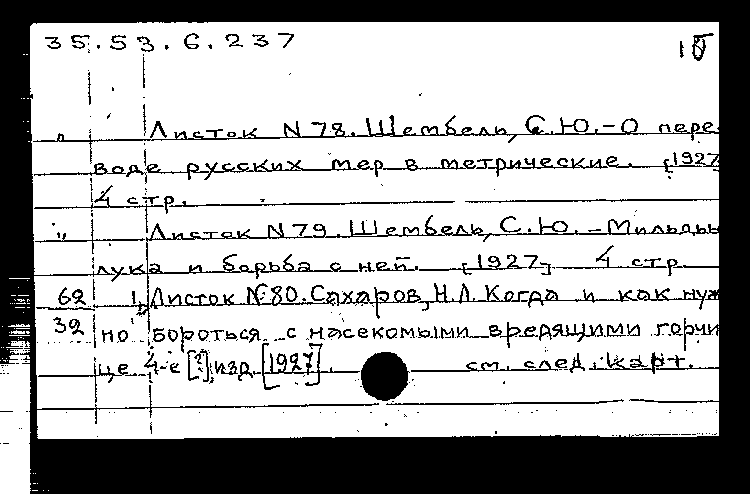 35.53.6.237
" Листок N 78. Шембель, С.Ю. - О пере
воде русских мер в метрические. [1927
4 стр.
" Листок N 79. Шембель, С.Ю. - Мильдью
лука и борьба с ней. [1927] 4 стр.
62 Листок № 80. Сахаров, Н.Л. Когда и как нуж
32 но бороться с насекомыми вредящими горчи
це 4-е [?] изд [1927]. см. след. карт.